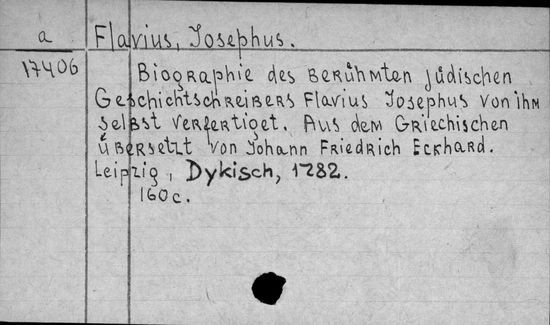 a
Flavius, Josephus.
17406
Biographie des berühmten jüdischen
Geschichtschreibers Flavius Josephus von ihm
selbst verfertiget. Aus dem Griechischen
übersetzt von Johann Friedrich Eckhard.
Leipzig, Dykisch, 1782.
160c.